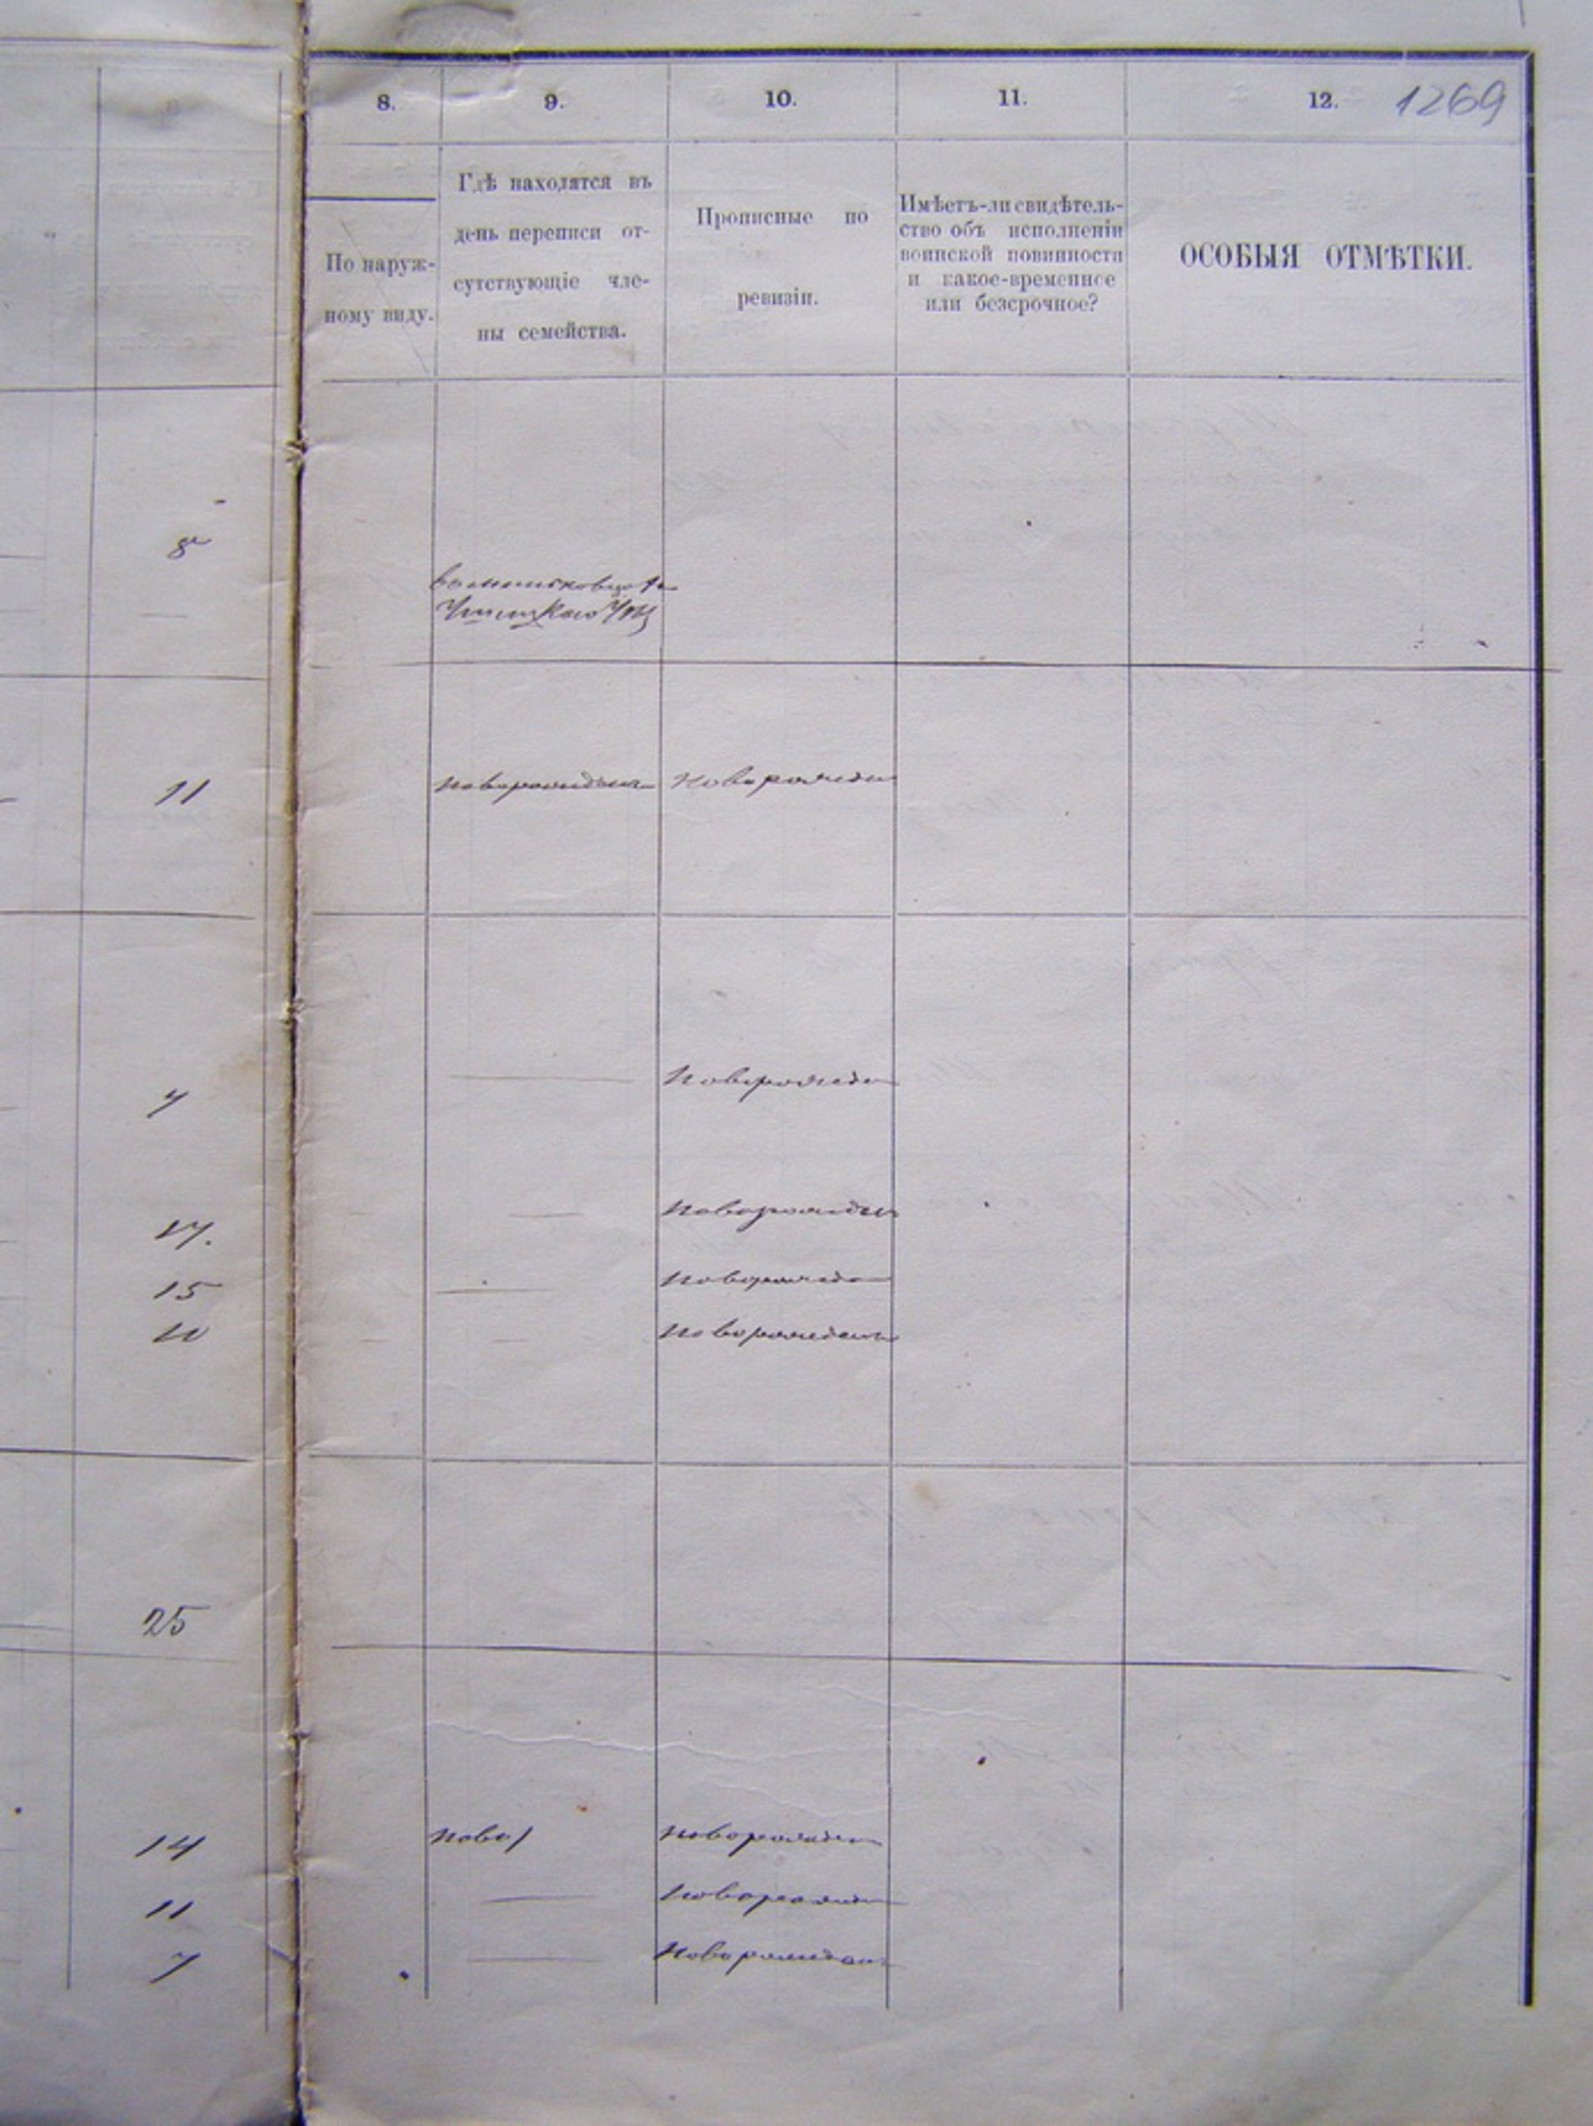 8.
9.
10.
11.
12.
1269
По наруж-
ному виду.
Гдѣ находятся въ
день переписи от-
сутствующіе чле-
ны семейства.
Прописные по
ревизіи.
Имѣетъ-ли свидѣтель-
ство объ исполненіи
воинской повинности
и какое-временное
или безсрочное?
ОСОБЫЯ ОТМѢТКИ.
8
11 Новорожден Новорожден
7 Новорожден
17. Новорожден
15 Новорожден
10 Новорожден
25
14 Новор Новорожден
11 Новорожден
7 Новорожден